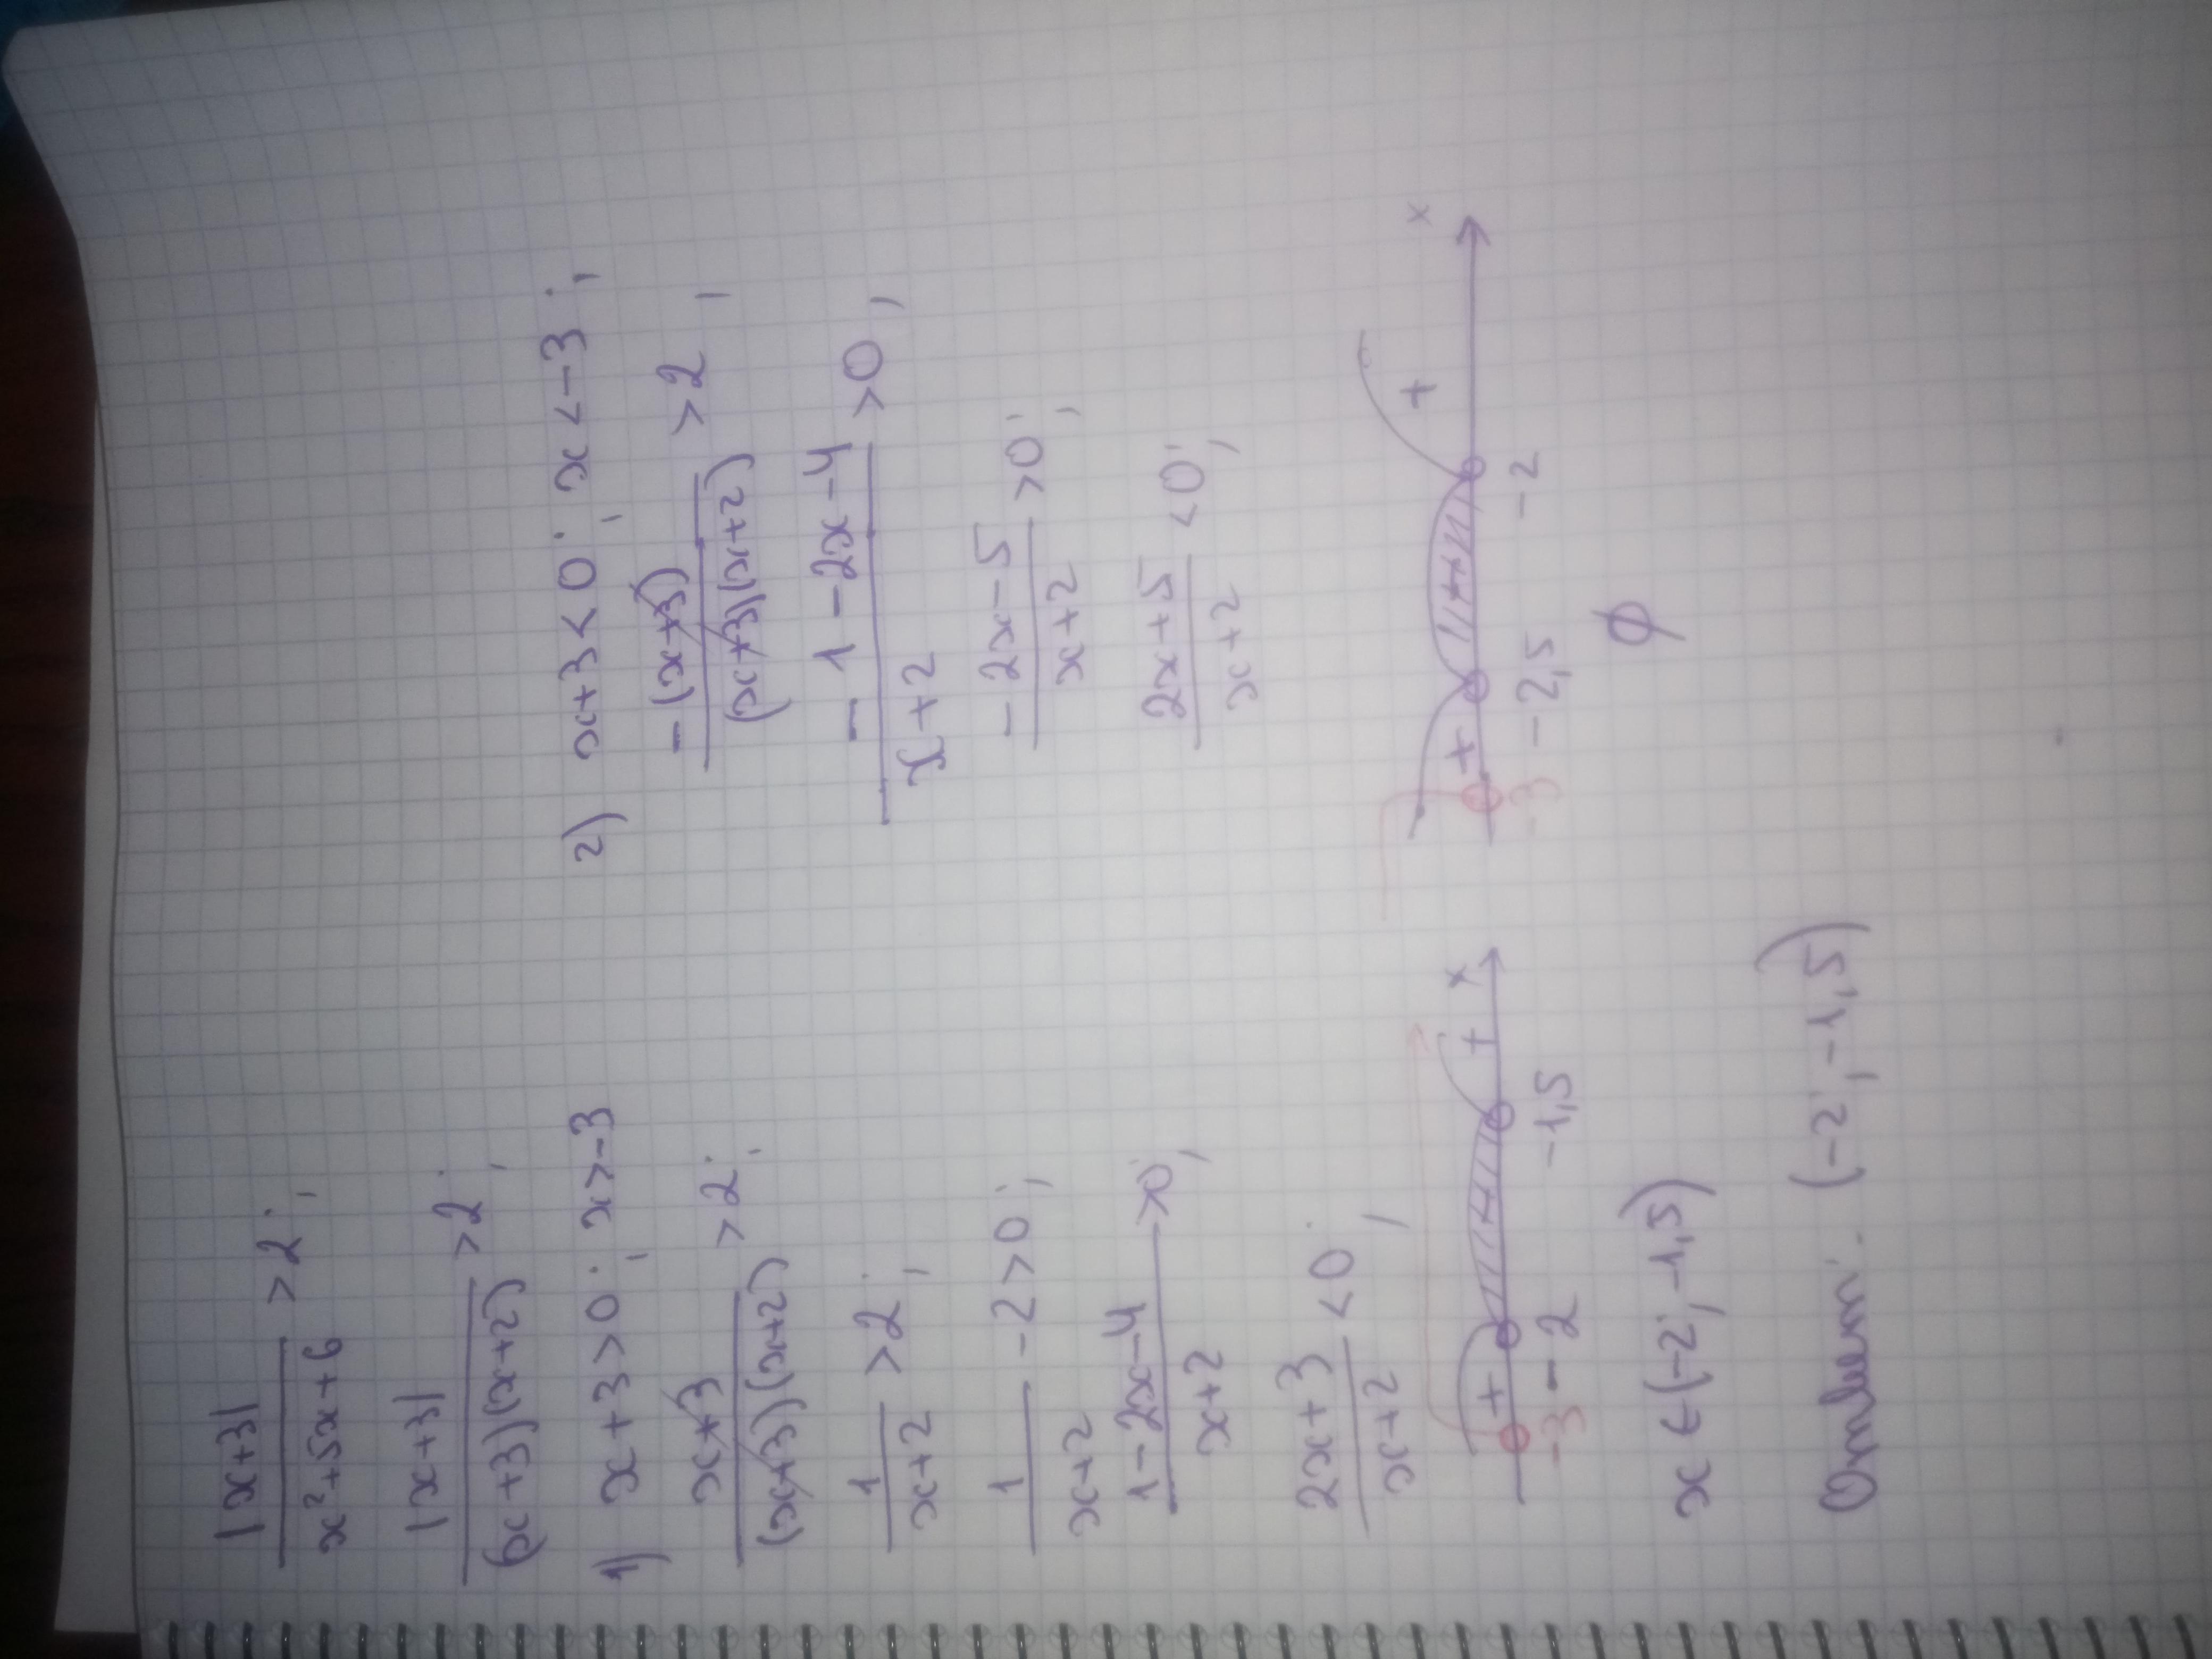 |x+3| / x²+5x+6 > 2;
|x+3| / (x+3)(x+2) > 2;
1) x+3>0; x>-3
x+3 / (x+3)(x+2) > 2;
1 / x+2 > 2;
1 / x+2 - 2 > 0;
1-2x-4 / x+2 > 0;
2x+3 / x+2 < 0;
+ + x
-3 -2 -1,5
x ∈ (-2; -1,5)
Ответ: (-2; -1,5)
2) x+3<0; x<-3;
-(x+3) / (x+3)(x+2) > 2;
-1-2x-4 / x+2 > 0;
-2x-5 / x+2 > 0;
2x+5 / x+2 < 0;
+ + x
-3 -2,5 -2
∅